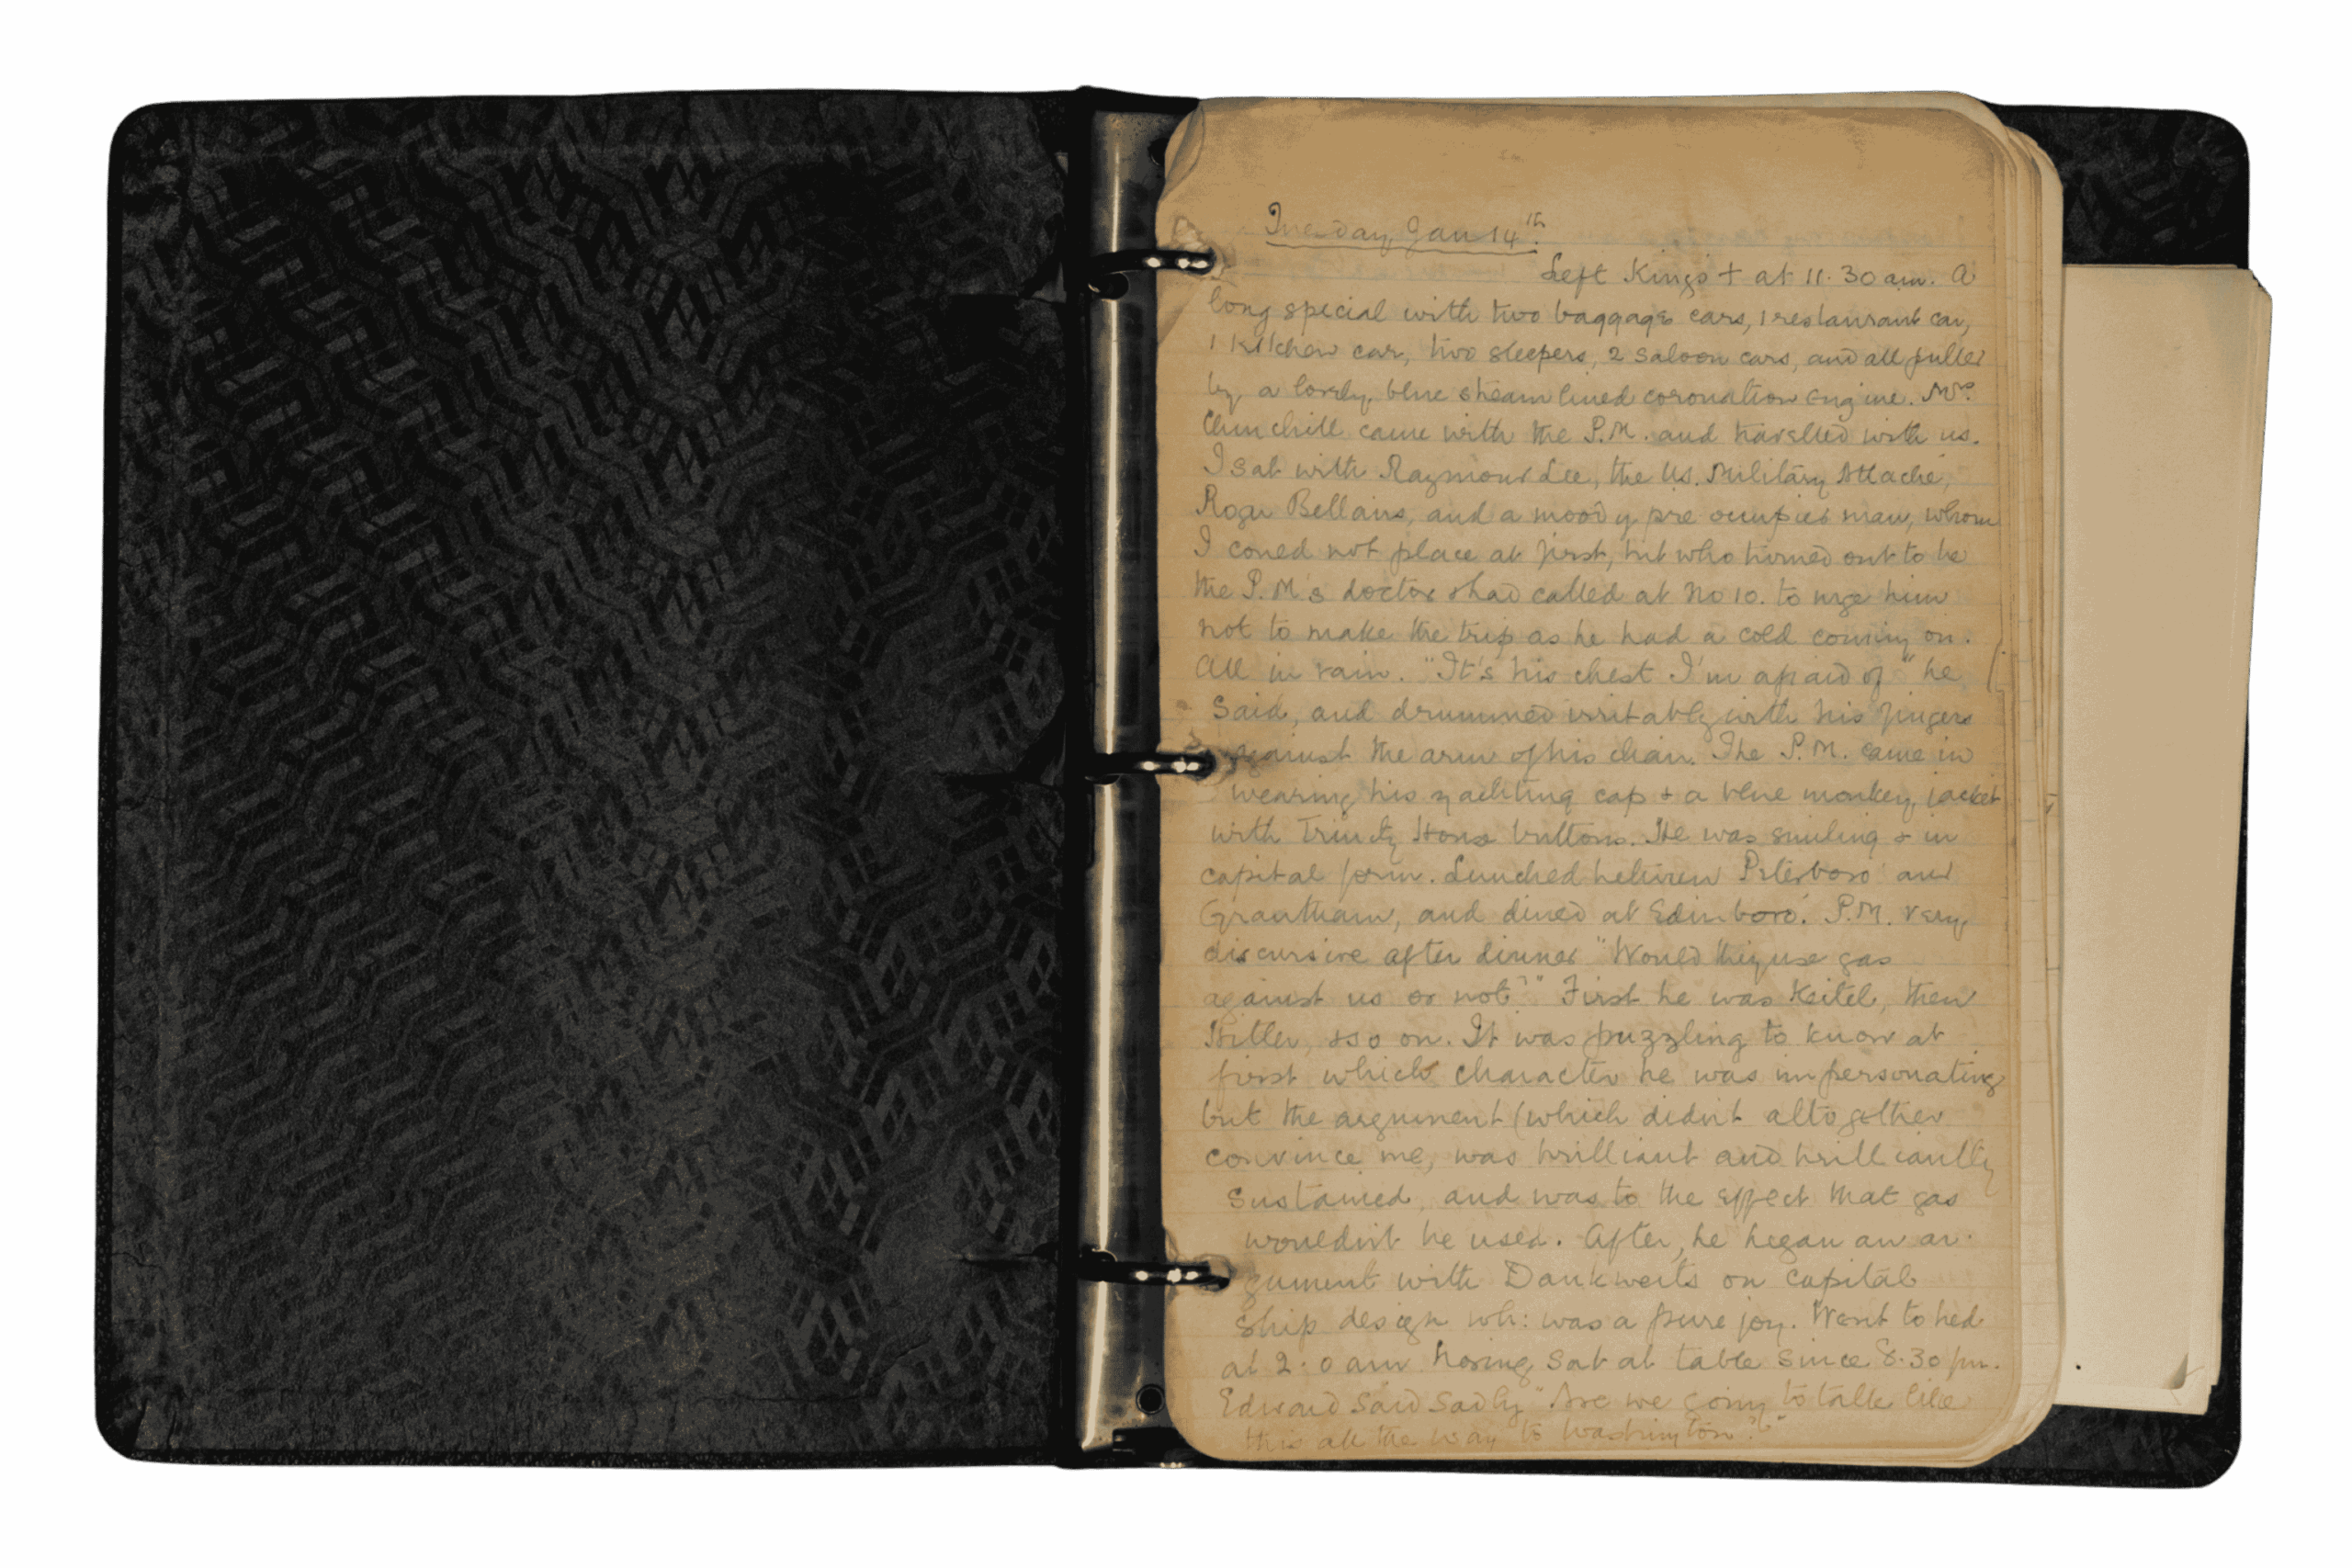 Tuesday, Jan 14th.
Left King's + at 11.30 am. A
long special with two baggage cars, 1 restaurant car,
1 kitchen car, two sleepers, 2 saloon cars, and all pulled
by a lovely, blue steam lined coronation engine. Mrs.
Churchill came with the P.M. and travelled with us.
I sat with Raymond Lee, the U.S. Military Attaché,
Roger Bellairs, and a moody pre occupied man, whom
I could not place at first, but who turned out to be
the P.M's doctor & had called at No 10. to urge him
not to make the trip as he had a cold coming on.
All in vain. "It's his chest I'm afraid of" he
said, and drummed irritably with his fingers
against the arm of his chair. The P.M. came in
wearing his yachting cap & a blue monkey jacket
with Trinity House buttons. He was smiling & in
capital form. Lunched between Peterboro' and
Grantham, and dined at Edinboro'. P.M. very
discursive after dinner "Would they use gas
against us or not?" First he was Keitel, then
Hitler, & so on. It was puzzling to know at
first which character he was impersonating
but the argument (which didn't altogether
convince me, was brilliant and brilliantly
sustained, and was to the effect that gas
wouldn't be used. After, he began an ar-
gument with Dankwerts on capital
ship design wh: was a pure joy. Went to bed
at 2.0 am having sat at table since 8.30 pm.
Edward said sadly "Are we going to talk like
this all the way to Washington?"